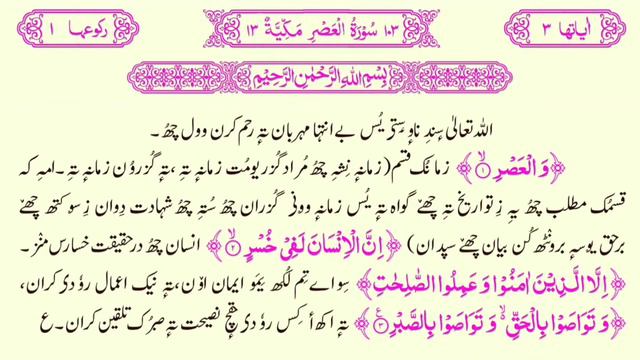 اٰیاتھا ۳ ۱۰۳ سُوْرَۃُ الْعَصْرِ مَکِّیَّۃٌ ۱۳ رکوعہا ۱
بِسْمِ اللهِ الرَّحْمٰنِ الرَّحِیْمِ
اللہ تعالیٰ سٕندِ ناوٕ ستۍ یُس بے انتہا مہربان تہٕ رحم کرن وول چھُ ۔
﴿وَالْعَصْرِ ۙ﴿۱﴾ زمانُک قسم (زمانہٕ نِشہِ چھُ مُراد گزریومُت زمانہٕ تہِ ،تہٕ گزرؤن زمانہٕ تہِ ۔امہِ کہ
قسمُک مطلب چھُ یہِ زِ تواریخ تہِ چھےٚ گواہ تہٕ یُس زمانہٕ وونۍ گزران چھُ سُتہِ چھُ شہادت دِوان زِ سو کتھ چھےٚ
برحق یوسہٕ برونٛٹھ کُن بیان چھےٚ سپدان) ﴿اِنَّ الْاِنْسَانَ لَفِیْ خُسْرٍ ۙ﴿۲﴾ انسان چھُ درحقیقت خسارس منٛز ۔
﴿اِلَّا الَّذِیْنَ اٰمَنُوْا وَعَمِلُوا الصّٰلِحٰتِ﴾ سِواے تم لُکھ یِمَو ایمان اوٚن،تہٕ نیک اعمال رؤدۍ کران،
﴿وَتَوَاصَوْا بِالْحَقِّ ۙ۬ وَتَوَاصَوْا بِالصَّبْرِ ﴿۳﴾ تہٕ اکھ أکِس رؤدۍ حٔقچ نصیحت تہٕ صبرُک تلقین کران ۔ع